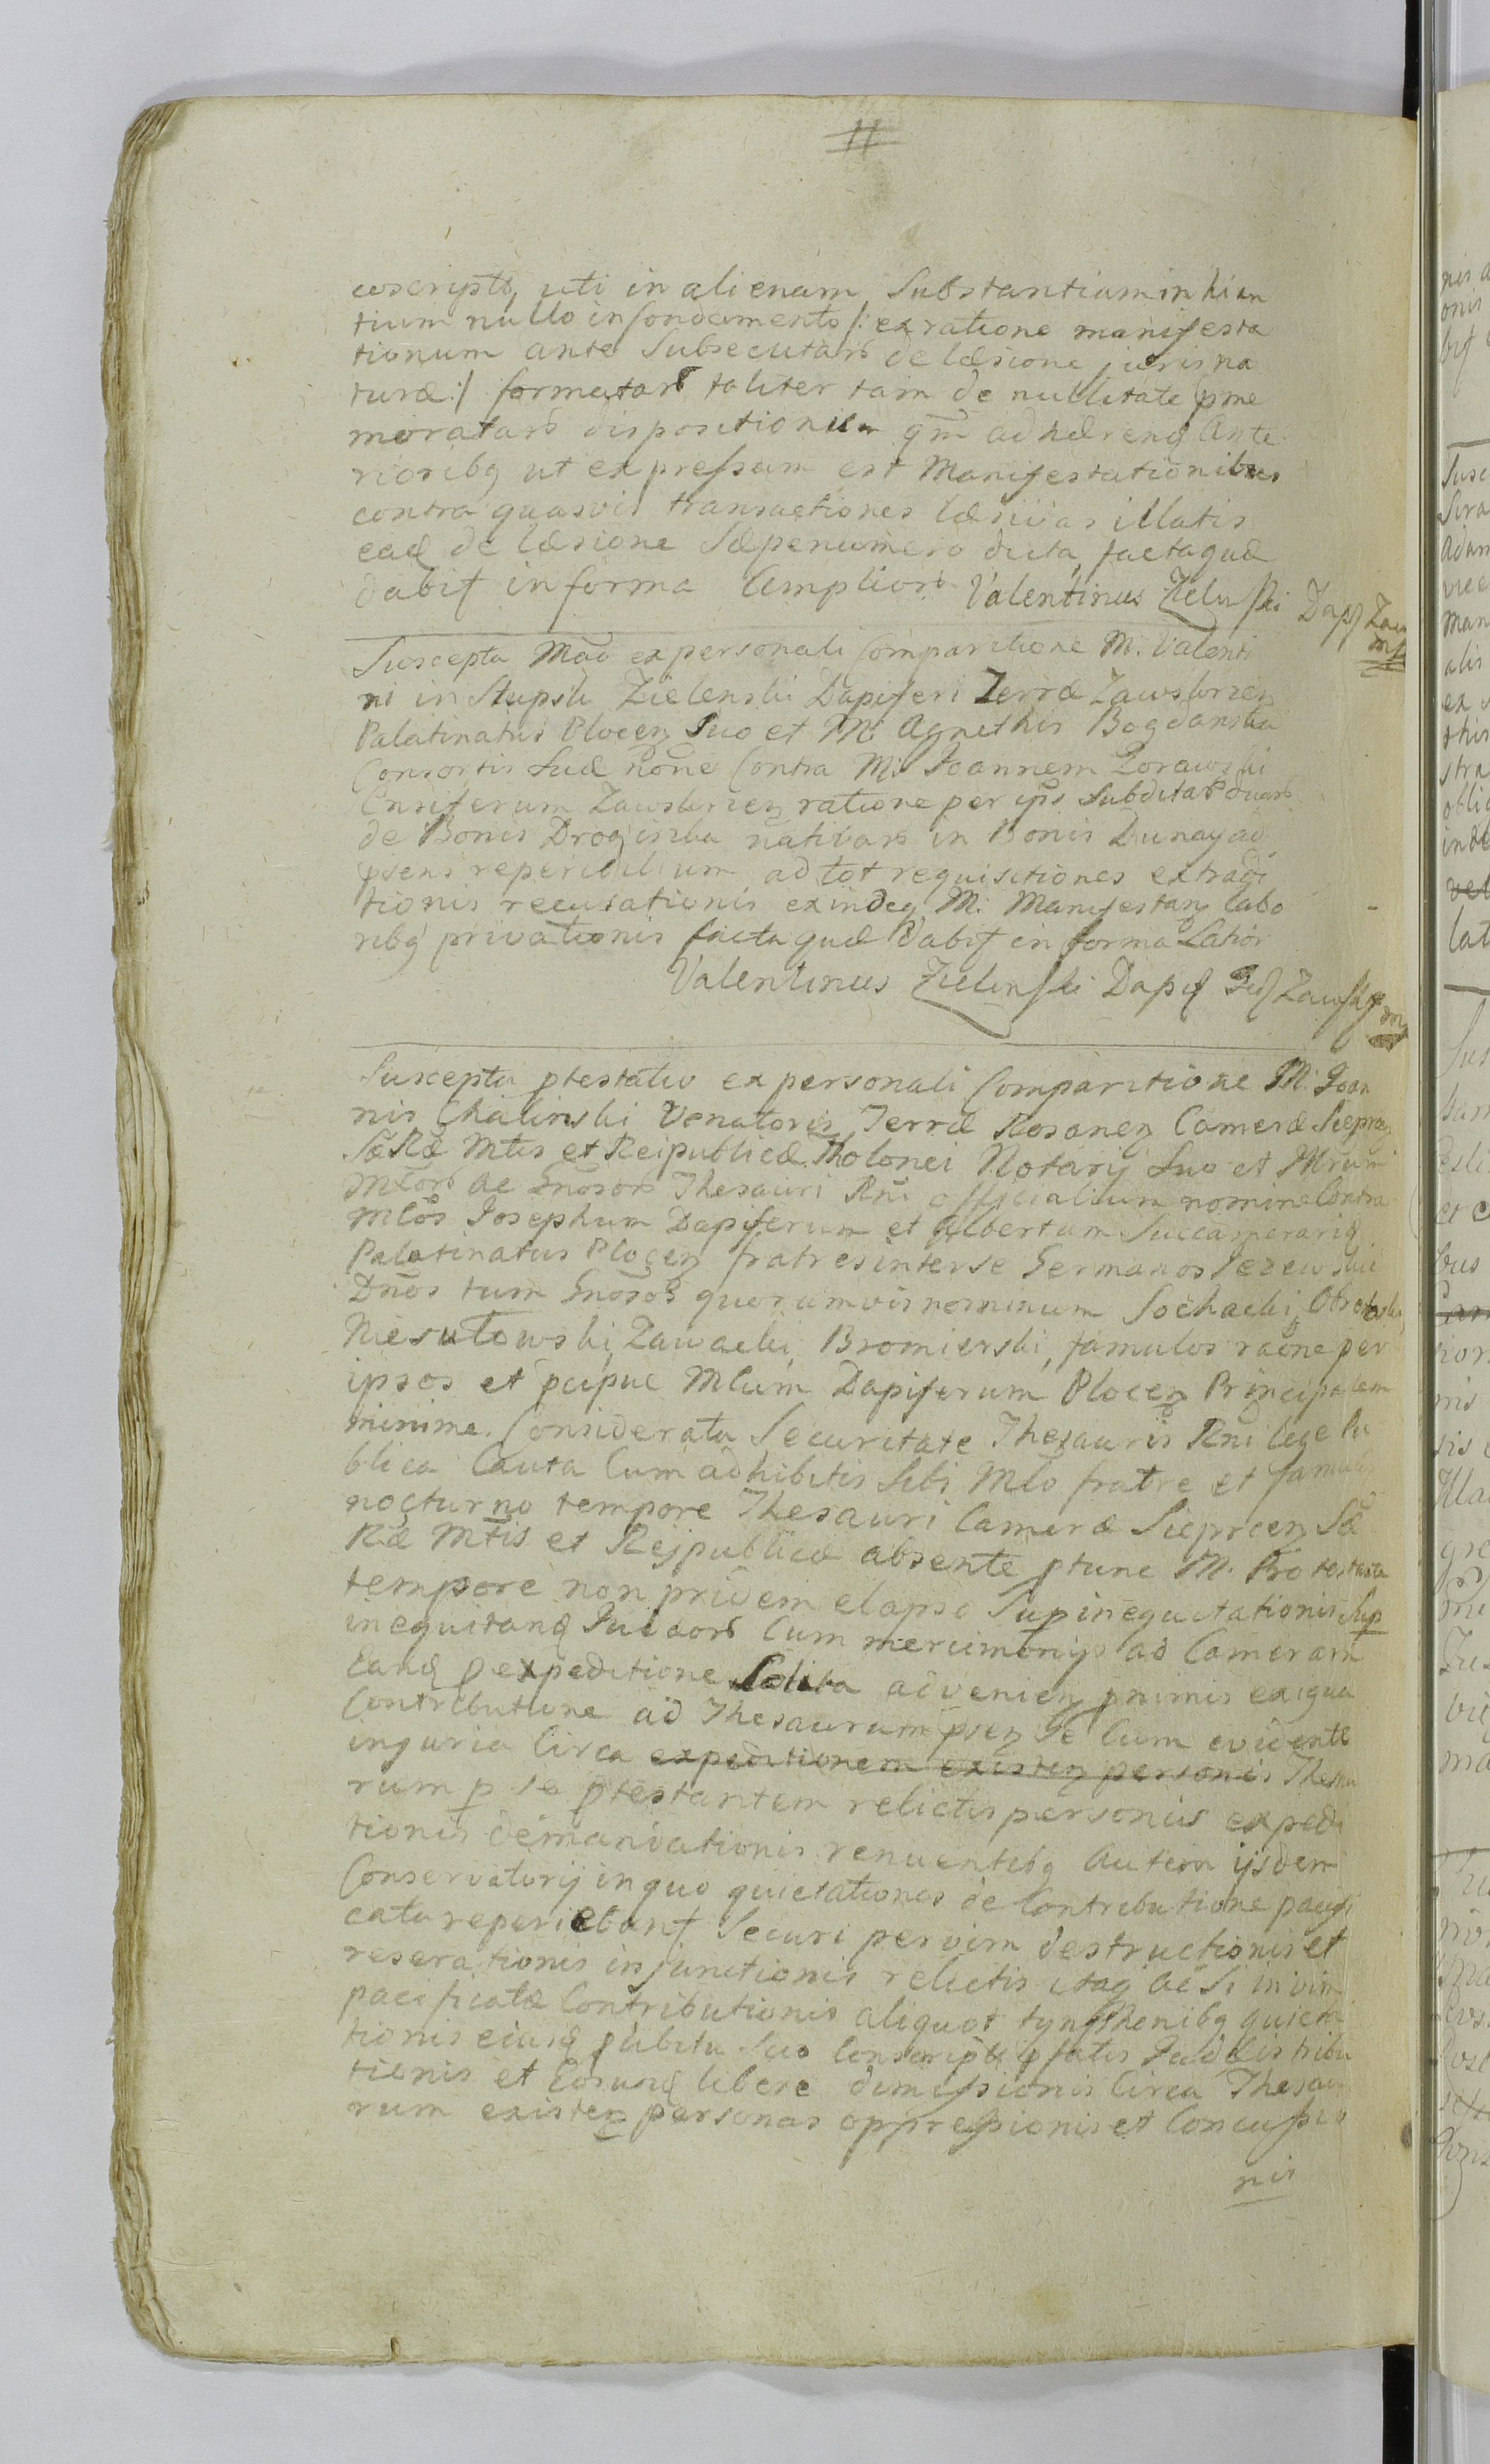 11
coscripto, uti in alienam Substantiam inhian
tium nullo in fondamento /: ex ratione manifesta
tionum ante Subsecutarō de læsione juris na
turæ :/ formatarō taliter tam de nullitate pme
moratarō dispositionum qm̄ adhærenđ Ante
rioribꝫ ut expressum est Manifestationibus
contra quasvis transactiones læsivas illatis
eađ de læsione Sæpenumero dicta, factaquæ
dabit in forma Ampliori Valentinus Zielinski Dapf Zaw
mp
Suscepta Māo ex personali Comparitione M. Valenti
ni in Slupsk Zielenski Dapiferi Terræ Zawskrzen
Palatinatus Plocen Suo et M. Agnethis Bogdanska
Consortis Suæ nōne Contra M. Joannem Zorawski
Ensiferum Zawskrzen ratione per ips Subditarō duarō
de Bonis Drogiska nativarō in Bonis Dunay ad
psens reperibilium ad tot requisitiones extradi
tionis recusationis exindeꝫ M. Manifestan labo
ribꝫ privationis factaquæ dabit in forma Latiori
Valentinus Zielinski Dapif Zawskr
mp
Suscepta ptestatio ex personali Comparitione M. Joan
nis Chalinski Venatoris Terræ Rosanen Cameræ Sieprcen
SæRæ Mtis et Reipublicæ Tholonei Notarij Suo et Illrum
Mlcorō ac Gnosorō Thesauri Rni officialium nomine Contra
Mlcōs Josephum Dapiferum et Albertum Succamerariđ
Palatinatus Plocen fratres inter se Germanos Jezewskie
Dnos tum Gnosos quorumvis nominum Sochacki,
Niesulowski, Zawacki, Bromierski, famulos raōne per
ipsos et pcipue Mlcum Dapiferum Plocen Principalem
minime Considerata Securitate Thesauris Rni lege Pu
blica Cauta Cum adhibitis Sibi Mlco fratre et famulis
nocturno tempore Thesauri Cameræ Sieprcen Sæ
Ræ Mtis et Reipublicæ absente ptunc M. Protestan
tempore non pridem elapso Supinequitationis Sup
inequitanđ Judæorō Cum mercimonijs ad Cameram
Eanđ p expeditione Solita advenien pnimis exigua
Contributione ad Thesaurum psen Se Cum evidente
injuria Circa expeditionem existen personis Thesau
rum p se ptestantem relictis personis expedi
tionis demandationis renuentibꝫ autem ijsdem
Conservatorij in quo quietationes de Contributione pacifi
cata reperiebant Securi per vim destructionis et
reserationis injunctionis relictis itaꝫ ac Si in vim
pacificatæ Contributionis aliquot tynfthenibꝫ quieta
tionis ejusđ plibitu Suo Conscriptæ pfatis Judæis tribu
tionis et Eorunđ libere dimissionis Circa Thesau
rum existen personas oppressionis et Concussio
nis